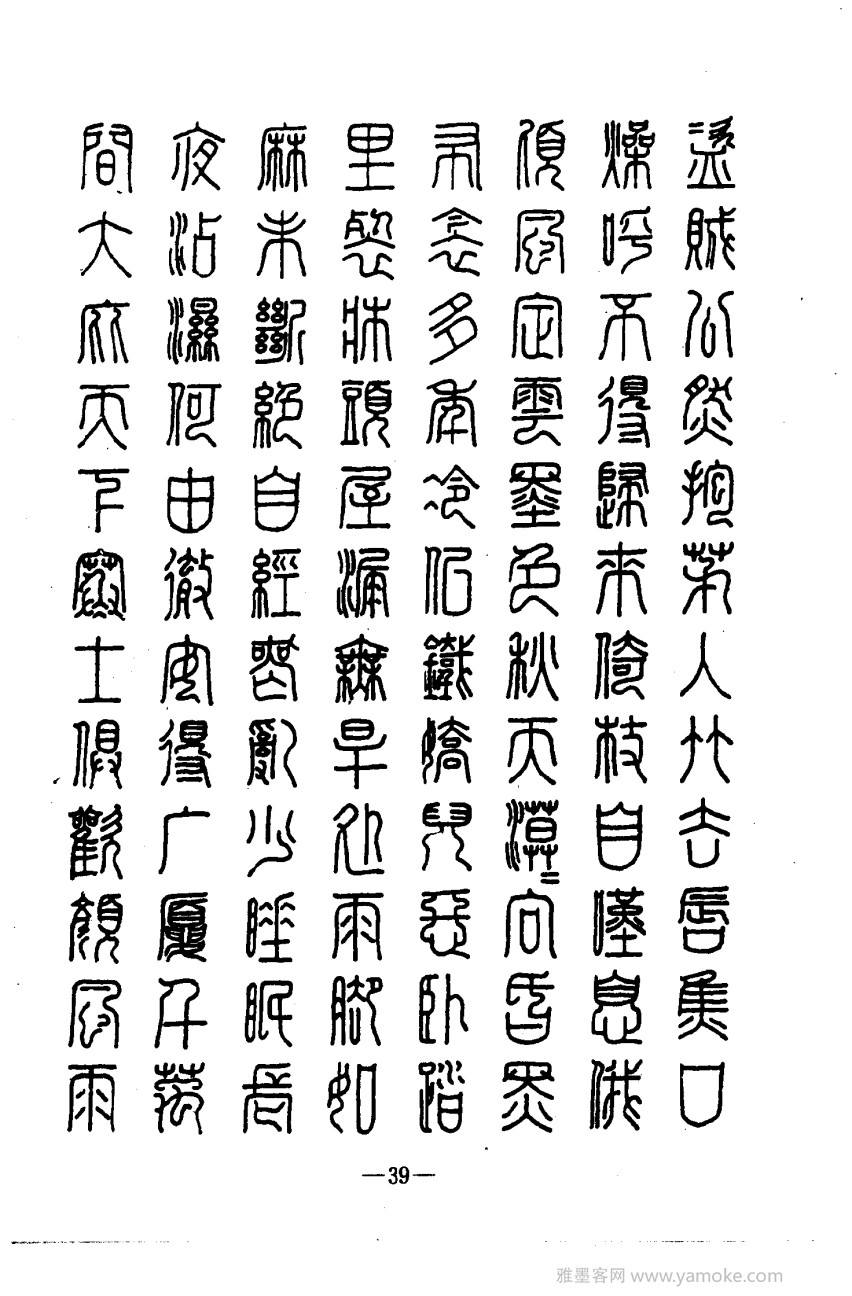 盜賊公然抱茅入竹去唇焦口
燥呼不得歸來倚杖自嘆息俄
頃風定雲墨色秋天漠=向昏黑
布衾多年冷似鐵嬌兒惡臥踏
里裂牀頭屋漏無旱処雨腳如
麻未斷絕自經喪亂少睡眠長
夜沾濕何由徹安得广廈千萬
間大庇天下寒士俱歡顏風雨
—39—
雅墨客网 www.yamoke.com